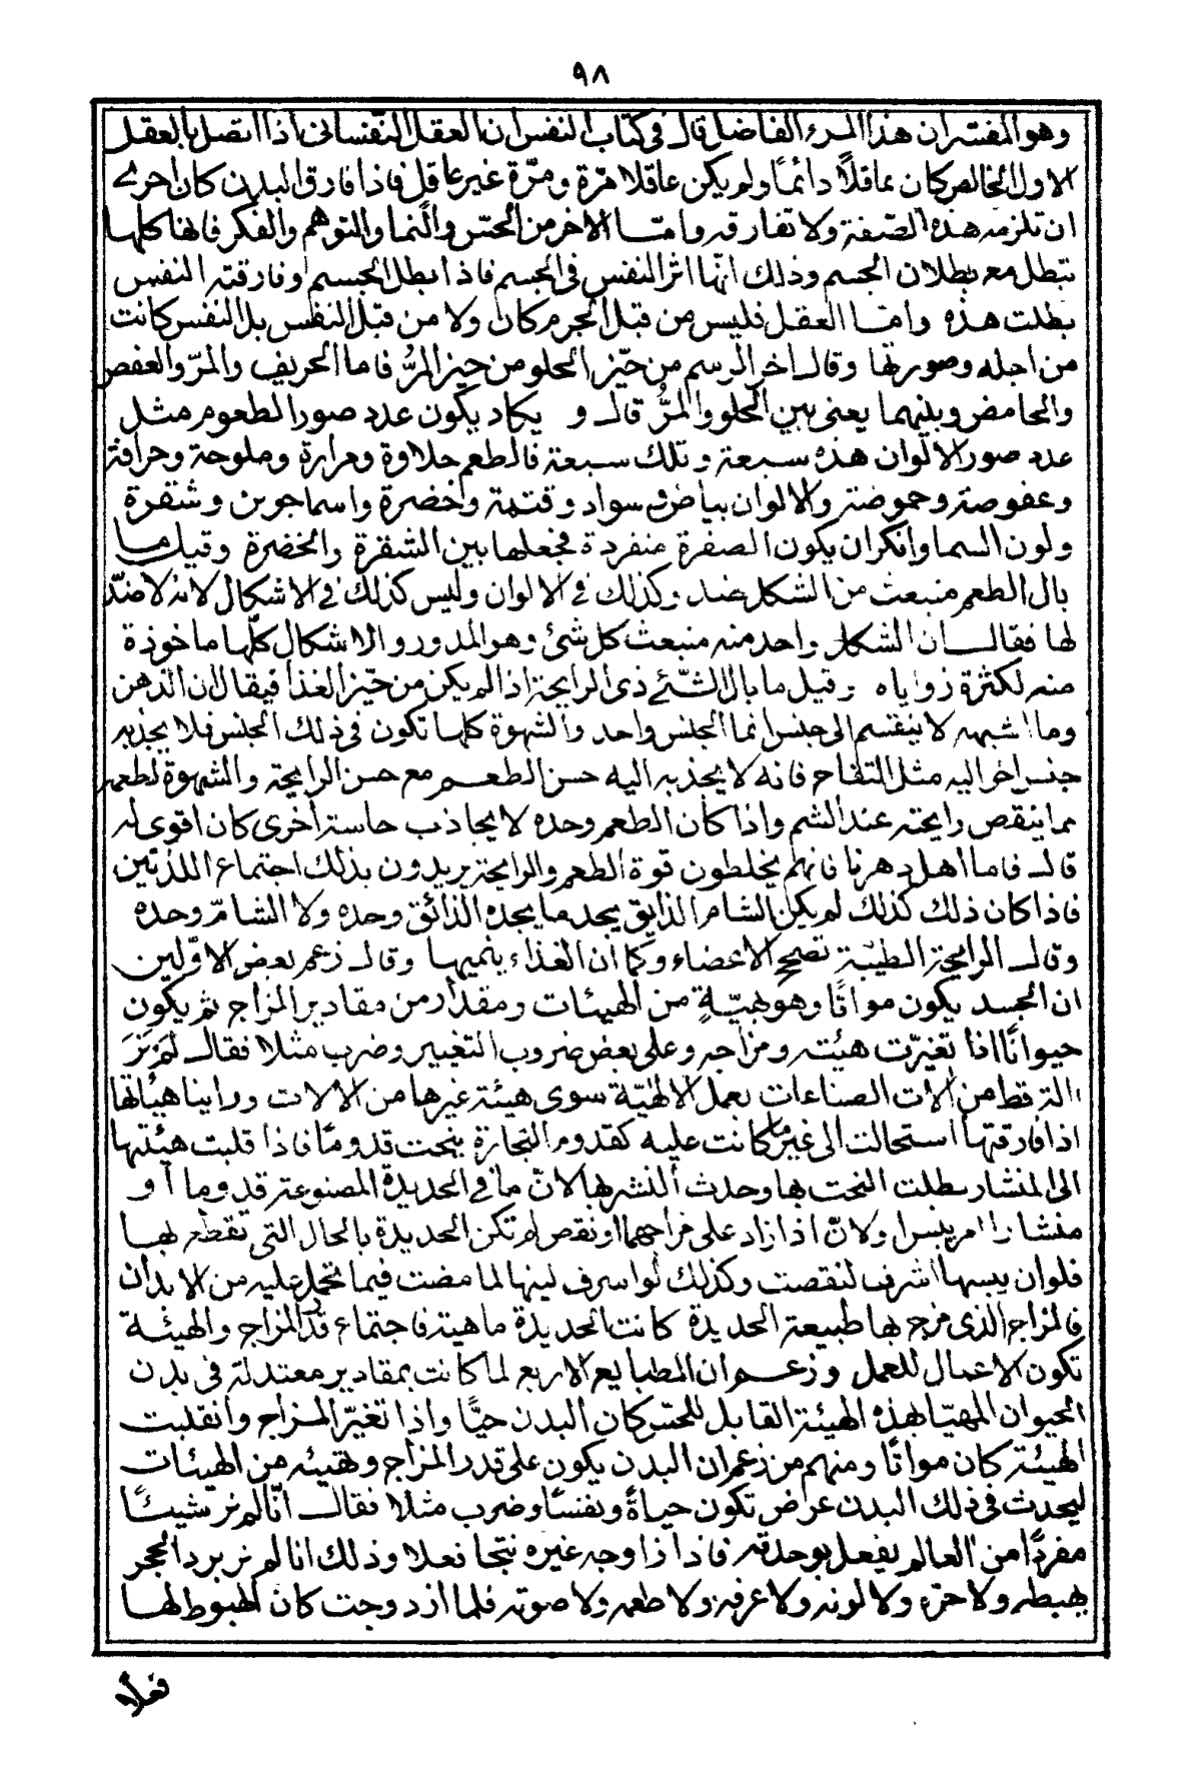 ٩٨
وهو المفتـ ان هذا المرء الفاضل قال فى كتاب النفس ان العقل النفسانى اذا اتصل بالعقل
الاول الخالص كان عاقلاً دائمًا ولم يكن عاقلا مرّة ومرّة غير عاقل فاذا فارق البدن كان احرى
ان تلزمه هذه الصفة ولا تفارقه وامّا الاخر من الحسّ والنما والتوهم والفكر فانها كلها
تبطل مع بطلان الجسم وذلك انّها اثر النفس فى الجسم فاذا بطل الجسم وفارقته النفس
بطلت هذه وامّا العقل فليس من قبل الجرم كان ولا من قبل النفس بل النفس كانت
من اجله وصورتها وقال اخر الرسم من حيّز الحلو من حيز المرُّ فاما الحريف والمرّ والعفص
والحامض وبينهما يعنى بين الحلو والمرُّ قال و يكاد يكون عدد صور الطعوم مثل
عدد صور الالوان هذه سبعة وتلك سبعة فالطعم حلاوة ومرارة وملوحة وحرافة
وعفوصة وحموضة والالوان بياض و سواد وقتمة وخضرة واسماجون وشقرة
ولون السما وانكر ان يكون الصفرة منفردة فجعلها بين الشقرة والخضرة وقيل ما
بال الطعم منبعث من الشكل ضد وكذلك فى الالوان وليس كذلك فى الاشكال لانه لا ضدّ
لها فقال ان الشكل واحد منه منبعث كل شئ وهو المدور والاشكال كلّها ماخوذة
منه لكثرة زواياه وقيل ما بال الشئ ذى الرايحة اذا لم يكن من حيّز الغذا فيقال ان الذهن
وما اشبهه لا ينقسم الى جنس انما الجنس واحد والشهوة كلها تكون فى ذلك الجنس فلا يجذبه
جنس اخر اليه مثل التفاح فانه لا يجذبه اليه حسن الطعم مع حسن الرايحة والشهوة لطعمه
مما ينقص رايحته عند الشم واذا كان الطعم وحده لا يجاذب حاسة أخرى كان اقوى له
قال فاما اهل دهرنا فانهم يخلطون قوة الطعم والرايحة يريدون بذلك اجتماع اللذتين
فاذا كان ذلك كذلك لم يكن الشام الذايق يجد ما يجده الذائق وحده ولا الشامّ وحده
وقال الرايحة الطيّبة تصحح الاعضاء وكما ان الغذاء ينميها وقال زعم بعض الاوّلين
ان الجسد يكون مواتًا وهو بهيّةٍ من الهيئات ومقدار من مقادير المزاج ثم يكون
حيوانًا اذا تغيّرت هيئته ومزاجه وعلى بعض ضروب التغيير وضرب مثلا فقال لم نَرَ
الة قط من الات الصناعات بعمل الالهيّة سوى هيئة غيرها من الالات وراينا هيئاتها
اذا فارقتها استحالت الى غير ما كانت عليه كقدوم النجارة ينحت قدومًا فاذا قلبت هيئتها
الى المنشار بطلت النحت بها وحدث النشر بها لانّ ما فى الحديدة المصنوعة قدوما او
منشارا مر يبس ولانّ اذا زاد على مزاجهما او نقص لم تكن الحديدة بالحال التى تقطع بها
فلو ان يبسها اشرف لنقصت وكذلك لو اسرف لينها لما مضت فيما تحمل عليه من الابدان
فالمزاج الذى مزج بها طبيعة الحديدة كانت الحديدة ماهية فاجتماع قدر المزاج والهيئة
تكون الاعمال للعمل وزعم ان الطبايع الاربع لما كانت بمقادير معتدلة فى بدن
الحيوان المهيّا بهذه الهيئة القابل للحس كان البدن حيًّا واذا تغيّر المزاج وانقلبت
الهيئة كان مواتًا ومنهم من زعم ان البدن يكون على قدر المزاج وتهيئه من الهيئات
ليحدث فى ذلك البدن عرض تكون حياةً ونفسًا وضرب مثلا فقال انّا لم نر شيئًا
مفردًا من العالم يفعل بوحدته فاذا زاوجه غيره نتجا فعلا وذلك انا لم نر برد الحجر
يهبطه ولا حرّه ولا لونه ولا عرفه ولا طعمه ولا صوته فلما ازدوجت كان الهبوط لها
فعلا